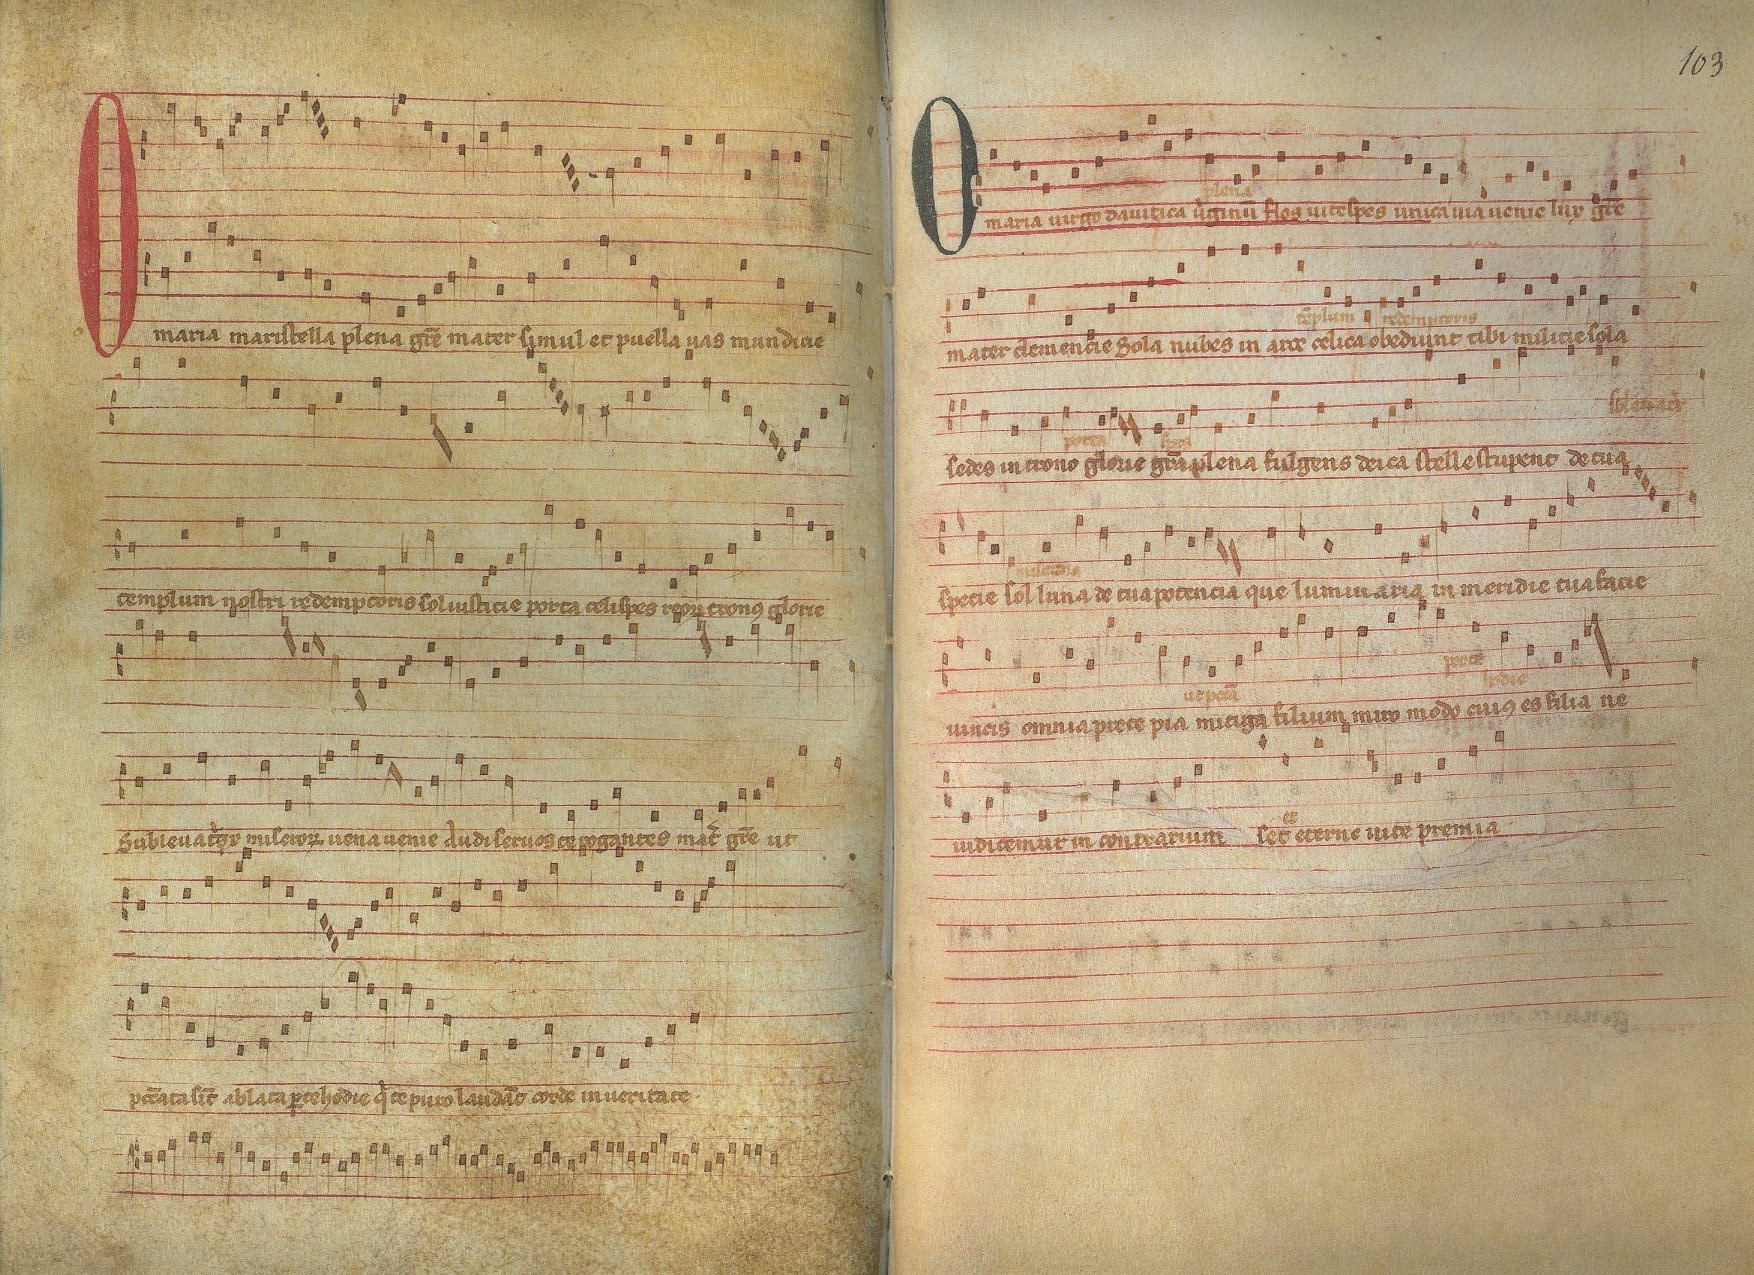 O
maria maristella plena gr̄e mater simul et puella uas mundicie
templum nostri redemptoris sol iusticie porta celi spes reoꝝ tronꝰ glorie
Subleuatͥx miseroꝝ uena uenie Audi seruos te rogantes mat͛ gr̄e ut
pc̄cata sīt ablata ꝑ te hodie qͥ te puro laudāt corde in ueritate.
103
O
plena
maria uirgo dauitica uͥginū flos uite spes unica uia uenie lux gr̄e
tēplum redemptoris
mater clemencie Sola iubes in arce celica obediunt tibi milicie sola
sol
porta
sedes in trono glorie grā plena fulgens deica stelle stupent de tua
specie sol luna de tua potencia que luminaria in meridie tua facie
ut pctā
hodie
uincis omnia prece pia mitiga filium miro modo cuiꝰ es filia ne
et
iudicemur in contrarium set eterne uite premia